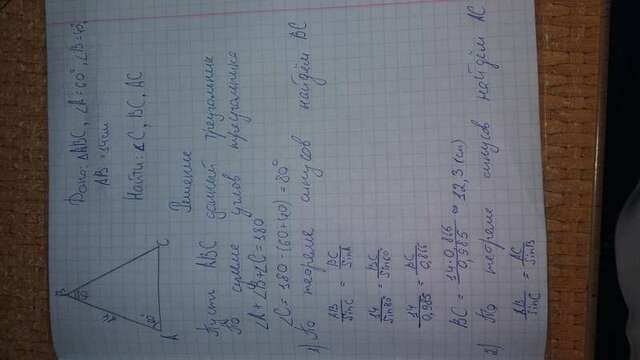 Дано: △ABC, ∠A=60°, ∠B=40°,
AB = 14см
Найти: ∠C, BC, AC
B
40°
14
60°
A
C
Решение
Пусть ABC данный треугольник
По сумме углов треугольника
∠A+∠B+∠C=180
∠C=180-(60+40)=80°
1) По теореме синусов найдём BC
AB/sinC = BC/sinA
14/sin80 = BC/sin60
14/0,985 = BC/0,866
BC = 14·0,866/0,985 ≈ 12,3 (см)
2) По теореме синусов найдём AC
AB/sinC = AC/sinB